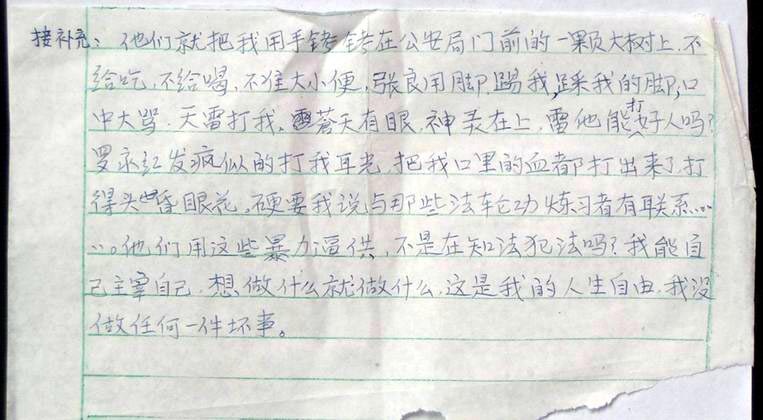 接补充：他们就把我用手铐铐在公安局门前的一颗大树上，不
给吃，不给喝，不准大小便，张良用脚踢我，踩我的脚，口
中大骂．天雷打我，苍天有眼，神灵在上，雷他能打好人吗？
罗永红发疯似的打我耳光，把我口里的血都打出来了，打
得头昏眼花，硬要我说与那些法轮功炼习者有联系……
……。他们用这些暴力逼供，不是在知法犯法吗？我能自
己主宰自己，想做什么就做什么，这是我的人生自由，我没
做任何一件坏事。